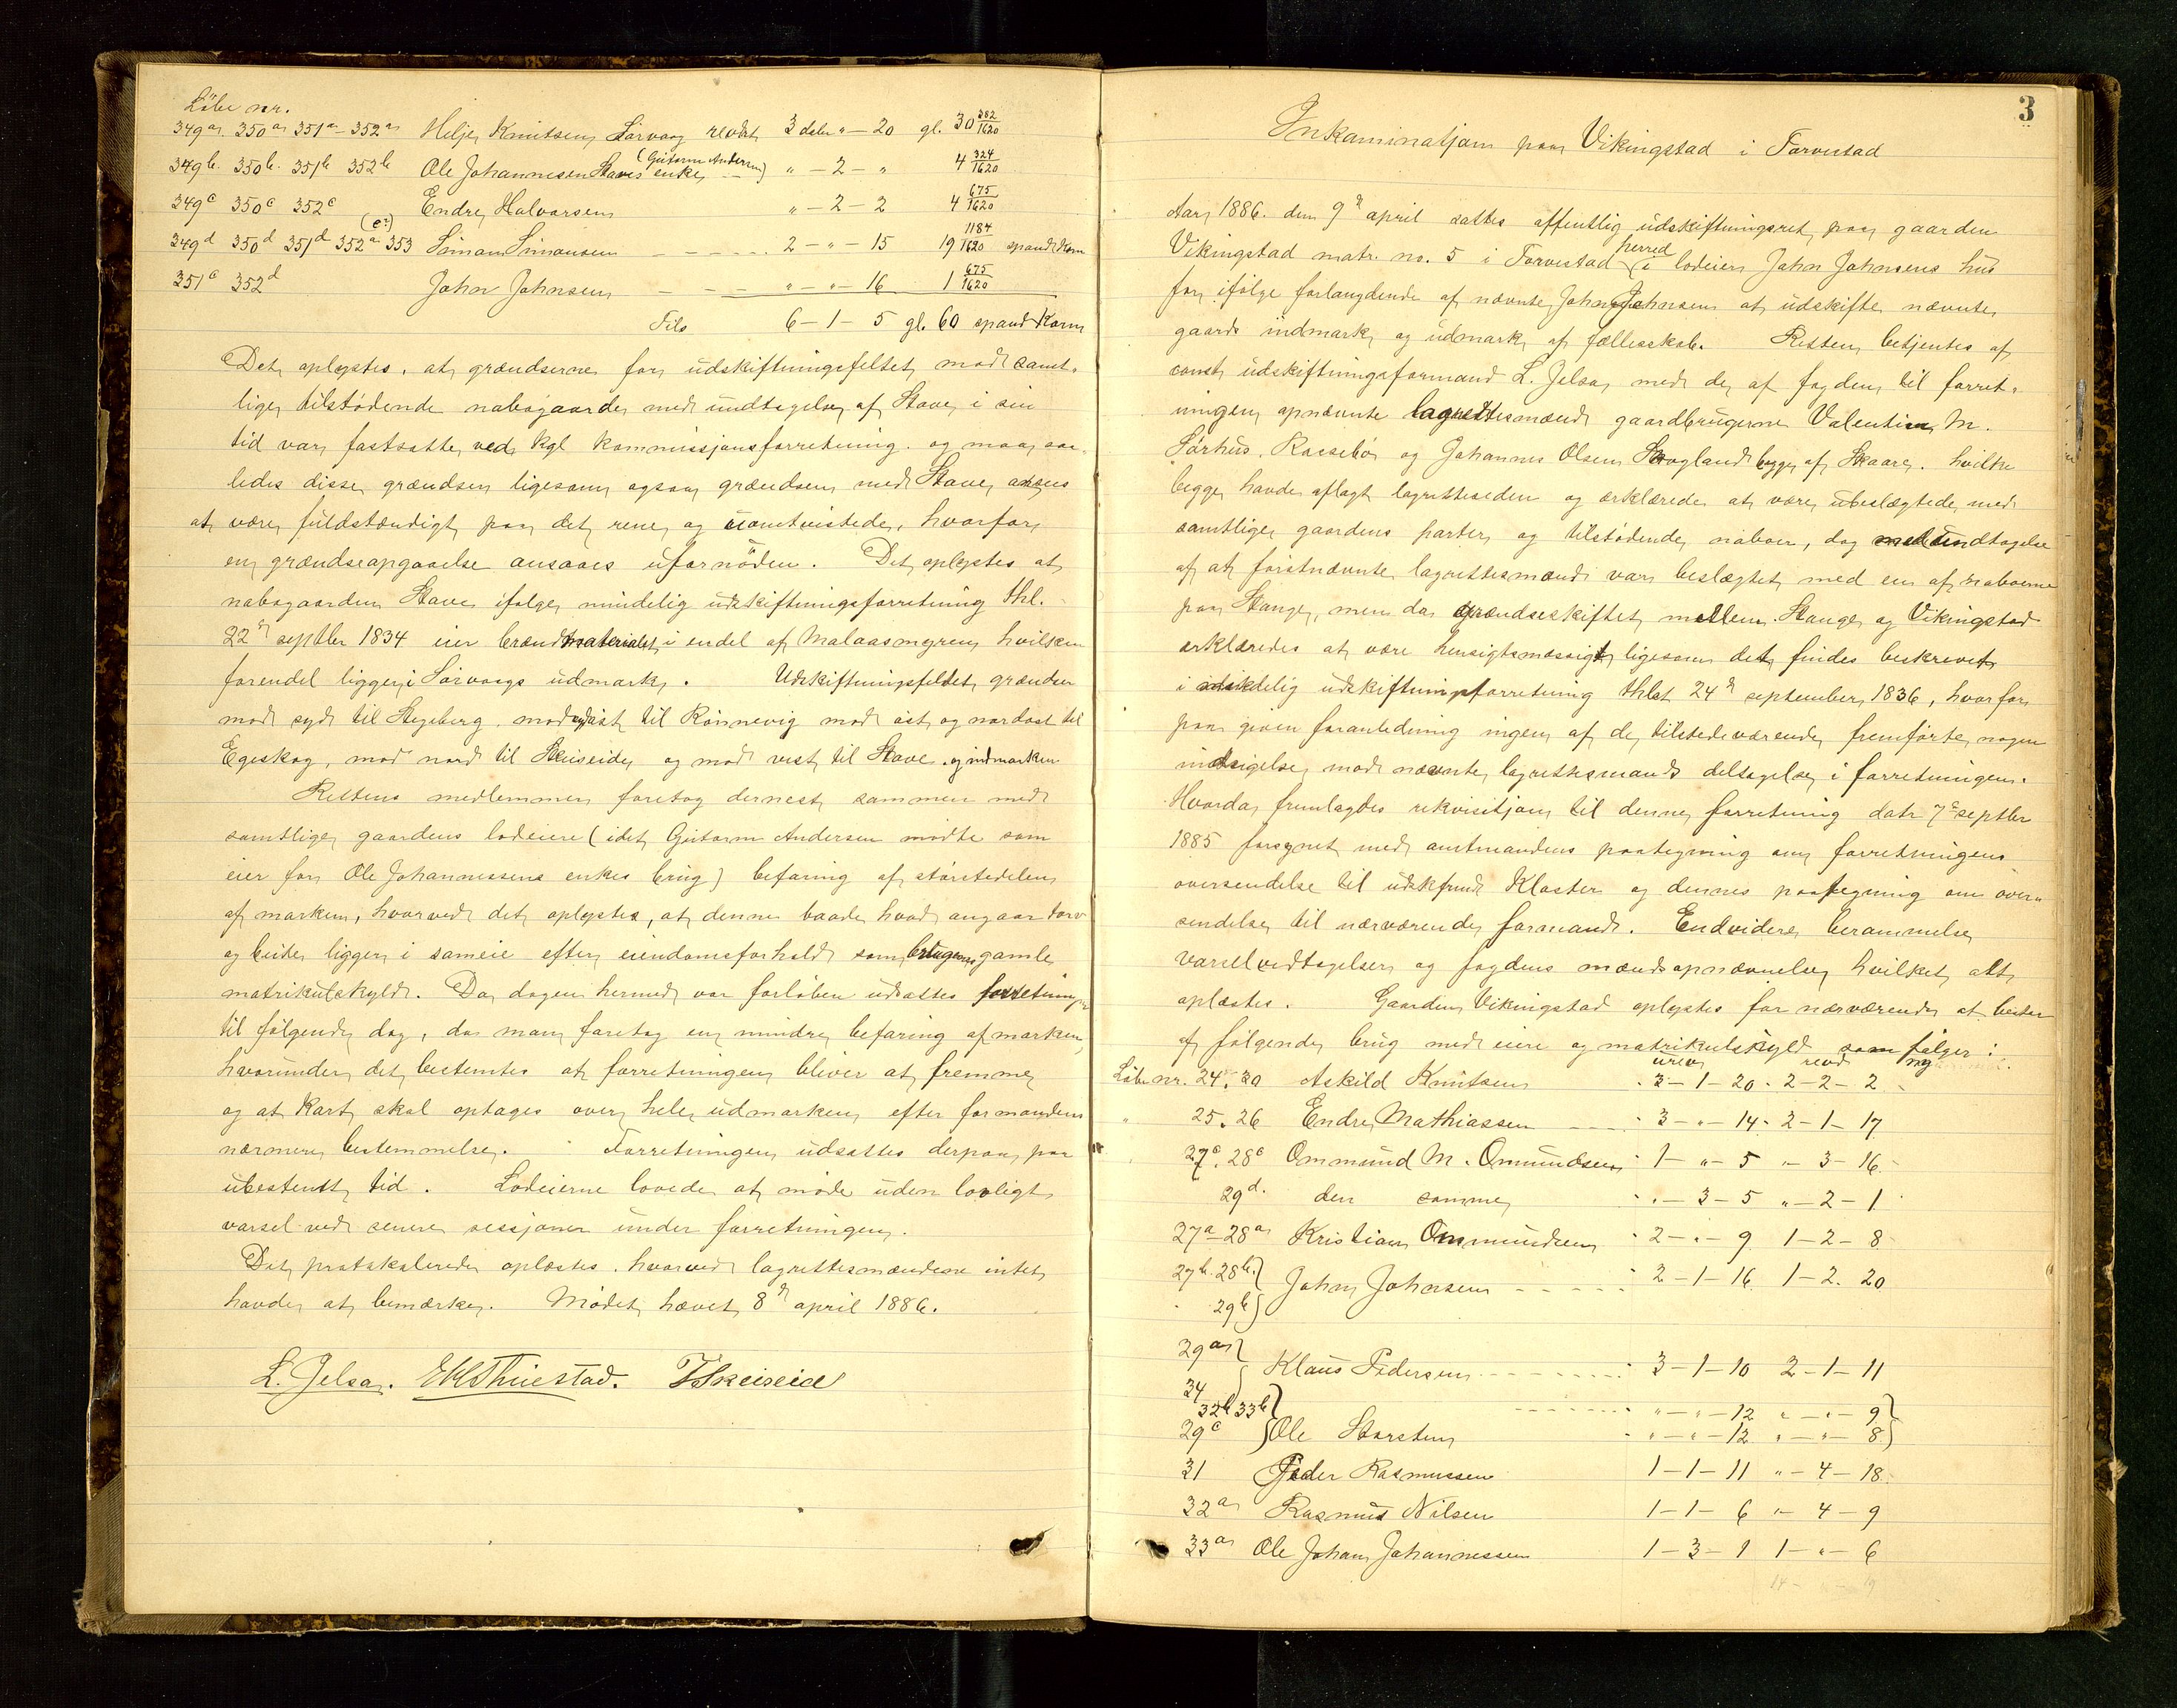 Löbe nr.
349a 350a 351a - 352a Helje Knutsen Sörvaag revdrt 3 daler " - 20 gl. 30 382/1620
349b. 350b. 351b 352b Ole Johannesen Staves enke (Gutorm Andersen) " - 2 - " 4 324/1620
349c 350c 352c Endre Halvorsen " - 2 - 2 4 675/1620
349d 350d 351d 352a (e?) 353 Siman Simonsen - - - - - 2 - " - 15 19 1184/1620 spand Korn
351c 352d John Johnsen - - - " - " - 16 1 675/1620
Tils 6 - 1 - 5 gl. 60 spand Korn
Det oplystes, at grændserne for udskiftningsfeltet mod samt-
lige tilstödende nabogaarde med undtagelse af Stave i sin
tid var fastsatte ved kgl kommissjonsforretning. og maa saa-
ledes disse grændser ligesom ogsaa grændsen med Stave ansees
at være fuldstændigt paa det rene og uomtvistede, hvorfor
en grændseopgaaelse ansaaes ufornöden. Det oplystes at
nabogaarden Stave ifölge mindelig udskiftningsforretning thl.
22d septbr 1834 eier brændmaterialet i endel af Malaasmyren hvilken
forendel ligger i Sörvaags udmark. Udskiftningsfeldtet grændser
mod syd til Stegberg, mod sydöst til Rönnevig mod öst og nordost til
Egeskog, mod nord til Skeiseide og mod vest til Stave. og indmarken
Rettens medlemmer foretog dernest sammen med
samtlige gaardens lodeiere (idet Gutorm Andersen mödte som
eier for Ole Johannessens enkes brug) befaring af störstedelen
af marken, hvorved det oplystes, at denne baade hvad angaar torv
og beite ligger i sameie efter eiendomsforhold som brugenes gamle
matrikulskyld. Da dagen hermed var forlöben udsattes forretningen
til fölgende dag, da man foretog en mindre befaring af marken,
hvorunder det bestemtes at forretningen bliver at fremme
og at Kart skal optages over hele udmarken efter formandens
nærmere bestemmelse. Forretningen udsattes derpaa paa
ubestemt tid. Lodeierne lovede at möde uden lovligt
varsel ved senere sessjoner under forretningen.
Det protokolerede oplæstes, hvorved lagrettesmændene intet
havde at bemærke. Mödet hævet 8d april 1886.
L. Jelsa. EKThuestad. TSkeiseid
3
Inkaminatjon paa Vikingstad i Torvestad
Aar 1886. den 9d april sattes offentlig udskiftningsret paa gaarden
Vikingstad matr. no. 5 i Torvestad herred i lodeier John Johnsens hus
for ifölge forlangdende af nævnte John Johnsen at udskifte nævnte
gaards indmark og udmark af fællesskab. Retten betjentes af
const. udskiftningsformand L. Jelsa med de af fogden til forret-
ningen opnævnte lagrettesmænd gaardbrugerne Valentin M.
Sörhus, Rossebö og Johannes Olsen Skogland begge af Skaare. hvilke
begge havde aflagt lagretteseden og erklærede at være ubeslægtede med
samtlige gaardens parter og tilstödende naboer, dog med undtagelse
af at förstnævnte lagrettesmand var beslægtet med en af naboerne
paa Stange, men da grændseskiftet mellem Stange og Vikingstad
erklæredes at være hensigtsmæssigt ligesom det findes beskrevet
i mindelig udskiftningsforretning thlst 24d september 1836, hvorfor
paa given foranledning ingen af de tilstedeværende fremförte nogen
indsigelse mod nævnte lagrettesmands deltagelse i forretningen.
Hvorda fremlagdes rekvisitjon til denne forretning datr 7d septbr
1885 forsynet med amtmandens paategning om forretningens
oversendelse til udskfmd Kloster og dennes paategning om over-
sendelse til nærværende formand. Endvidere berammelse
varselvedtagelser og fogdens mændsopnævnelse hvilket alt
oplæstes. Gaarden Vikingstad oplystes for nærværende at bestaa
af fölgende brug med eiere og matrikulskyld som fölger:
urev revd ny
Löbe nr. 24. 30 Askild Knutsen 3 - 1 - 20 - 2 - 2 - 2
" 25. 26 Endre Mathiassen - - - 3 - " - 14 - 2 - 1 - 17
27c. 28c Ommund M. Omundsen 1 - " - 5 " - 3 - 16
29d. den samme " - 3 - 5 " - 2 - 1
27a - 28a Kristian Ommundsen 2 - " - 9 1 - 2 - 8
27b. 28b. 29b } John Johnsen - - - - - 2 - 1 - 16 1 - 2. 20
29a 34 } Klaus Pedersen - - - - - 3 - 1 - 10 2 - 1 - 11
32b 33b } - - - - - " - " - 12 " - " - 9 }
29c } Ole Storsten " - " - 12 " - " - 8 }
31 Peder Rasmussen 1 - 1 - 11 " - 4 - 18
32a Rasmus Nilsen 1 - 1 - 6 " - 4 - 9
33a Ole Johan Johannessen 1 - 3 - 1 1 - " - 6